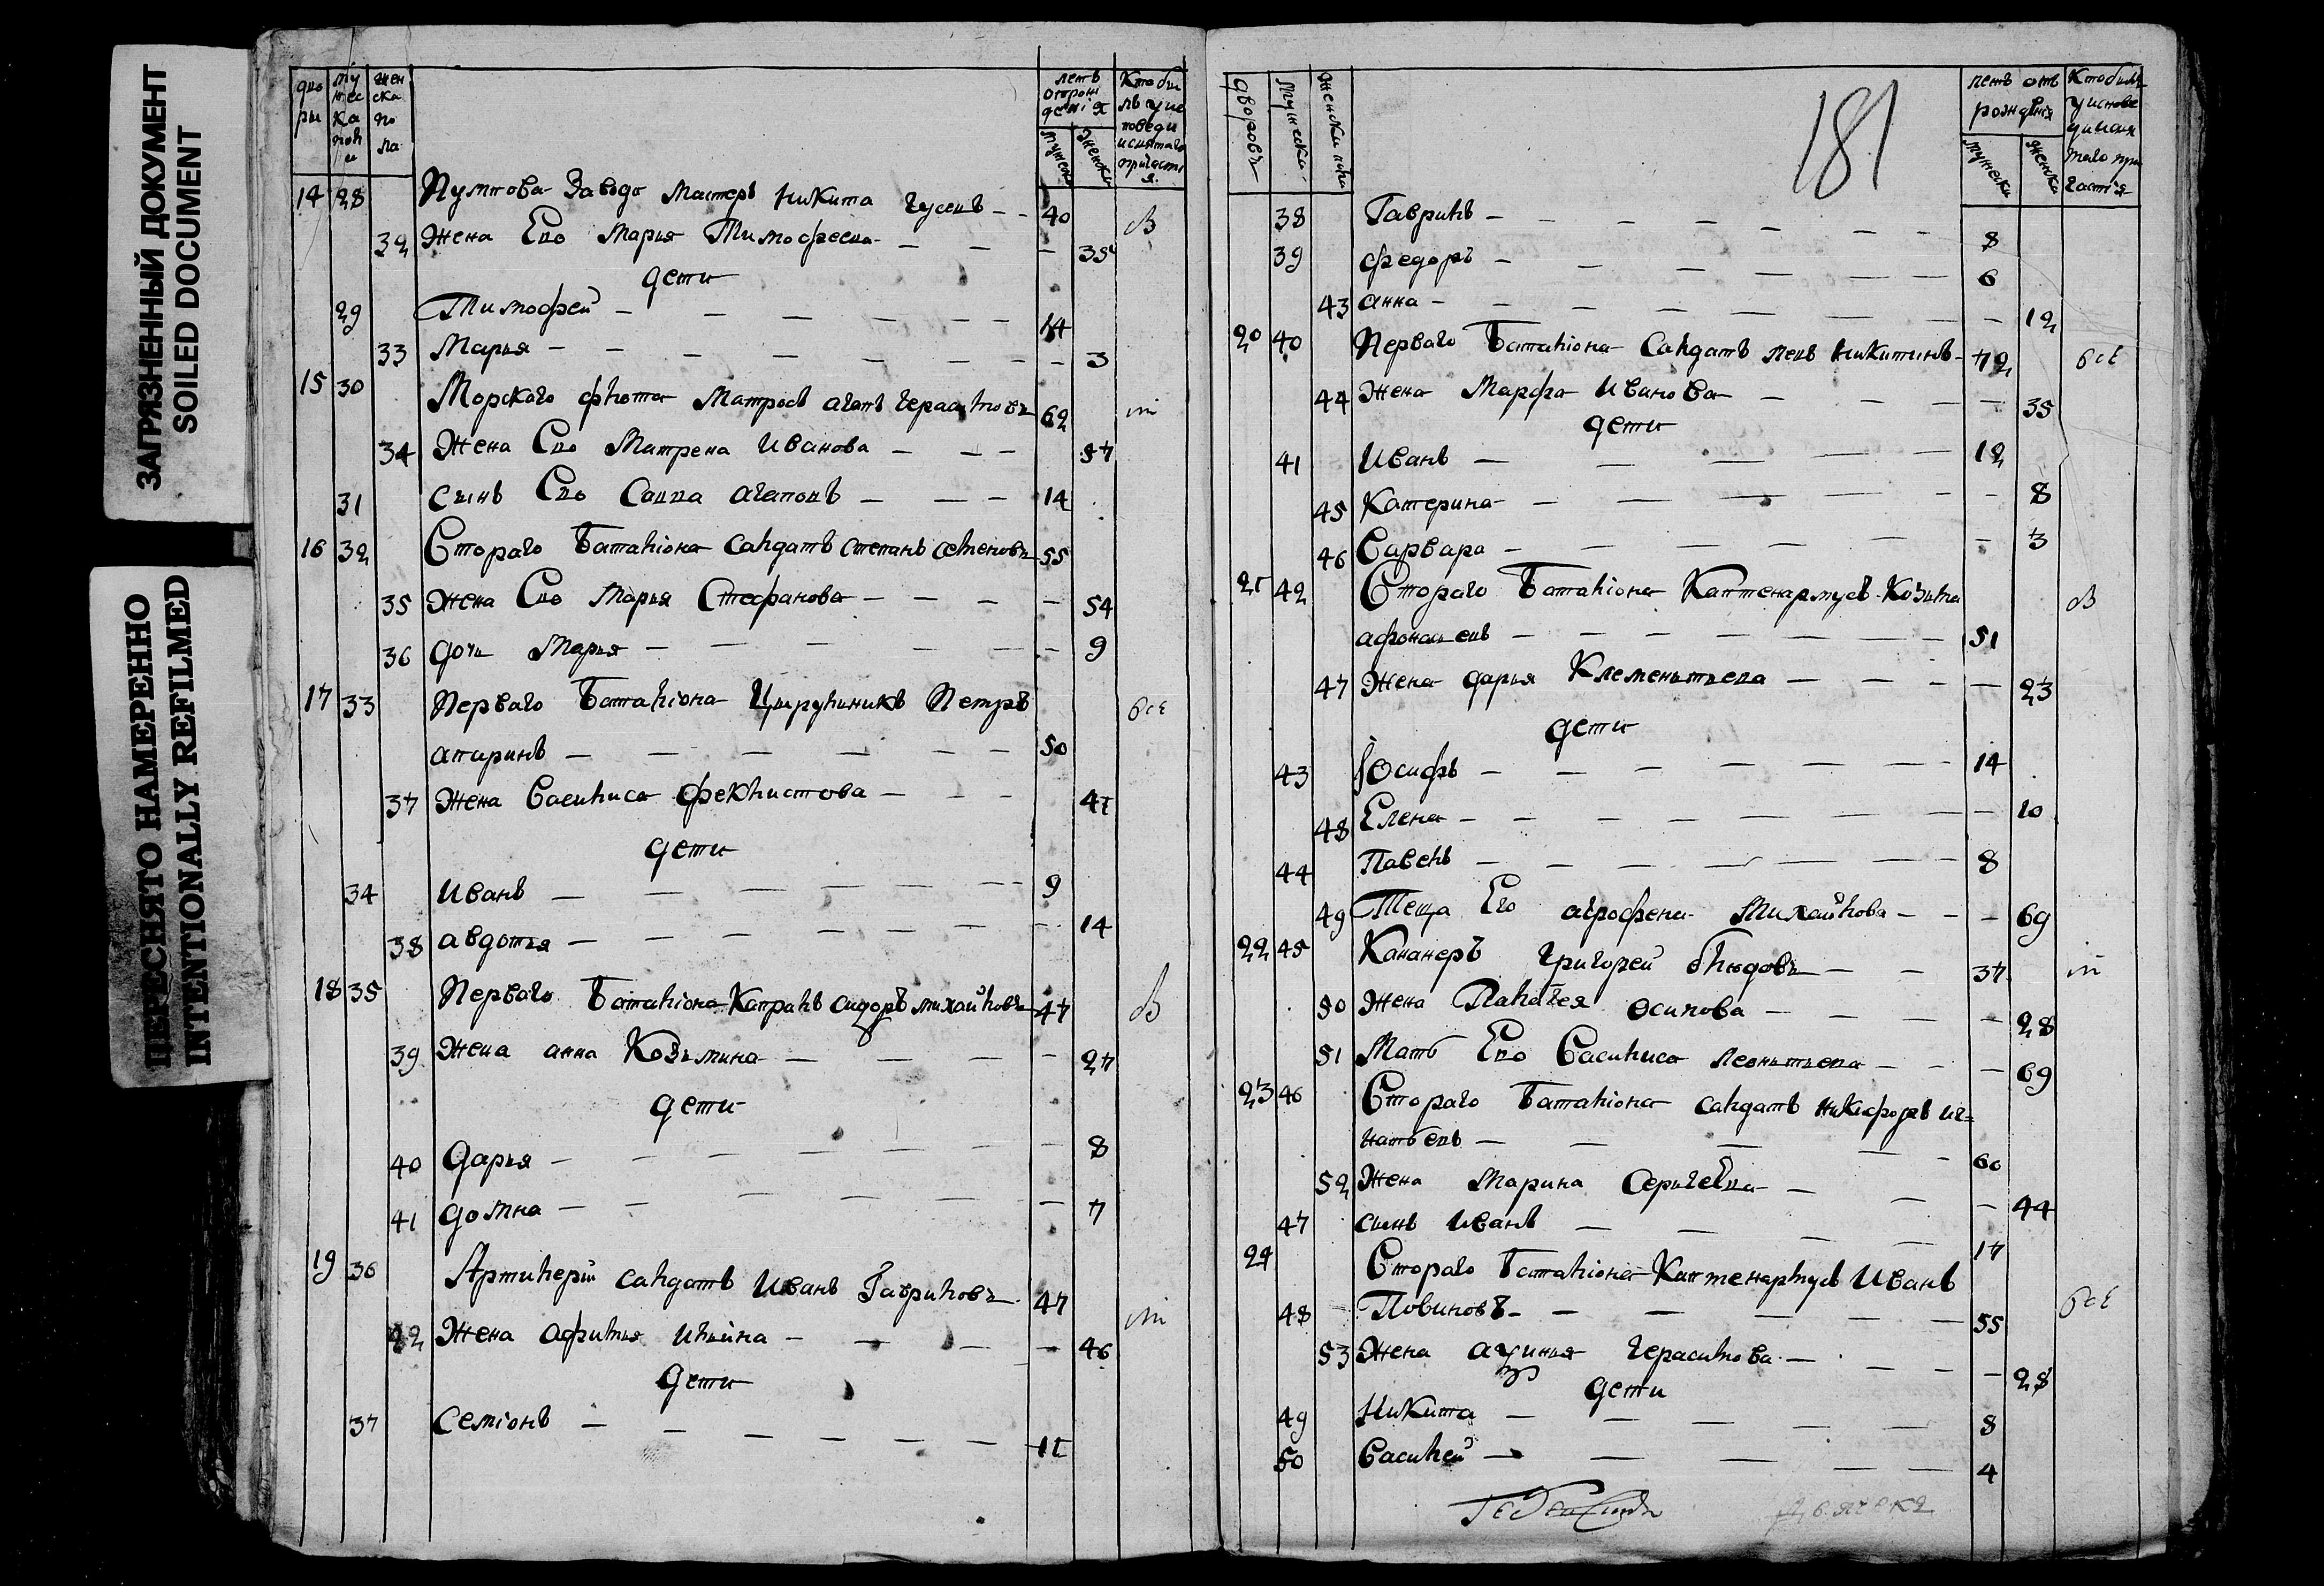 ЗАГРЯЗНЕННЫЙ ДОКУМЕНТ
SOILED DOCUMENT
ПЕРЕСНЯТО НАМЕРЕННО
INTENTIONALLY REFILMED
14 28 Мастеръ Никита Гусевъ 40
32 Жена Ево Марья Тимофеева 35
дети
29 Тимофей 14
33 Марья 3
15 30 Морского флота Матросъ агапъ герасимовъ 62
34 Жена Ево Матрена Иванова 57
31 сынъ Ево Савва агаповъ 14
16 32 Втораго Баталiона салдатъ степанъ семеновъ 55
35 Жена Ево Марья Стефанова 54
36 дочь Марья 9
17 33 Перваго Баталiона Цырулникъ Петръ все
апаринъ 50
37 Жена Василиса феклистова 47
дети
34 Иванъ 9
38 авдотья 14
18 35 Перваго Баталiона Капралъ сидоръ михайловъ 47
39 Жена анна Козьмина 27
дети
40 дарья 8
41 домна 7
19 36 Артилерiи салдатъ Иванъ Гавриловъ 47
42 Жена афимья ильина 46
дети
37 Семiонъ 11
дворовъ мужеска женска пола летъ отъ рожденiя
мужеска женска
181
38 Гаврилъ 8
39 федоръ 6
43 анна 12
20 40 Перваго Баталiона Салдатъ левъ никитинъ 72 все
44 Жена Марфа Иванова 35
дети
41 Иванъ 12
45 Катерина 8
46 Варвара 3
21 42 Втораго Баталiона Каптенармусъ Козьма
афонасьевъ 51
47 Жена дарья Клементьева 23
дети
43 Iосифъ 14
48 Елена 10
44 Павелъ 8
49 Теща Его агрофена Михайлова 69
22 45 Кананеръ григорей блюдовъ 37
50 Жена Палагея осипова 28
51 Мать Ево Василиса леонтьева 69
23 46 Втораго Баталiона салдатъ никифоръ иг=
натьевъ 60
52 Жена Марина Сергеева 44
47 сынъ Иванъ 17
24 Втораго Баталiона Каптенармусъ Иванъ
48 Новиновъ 55 все
53 Жена герасимова 28
дети
49 Никита 8
50 Василей 4